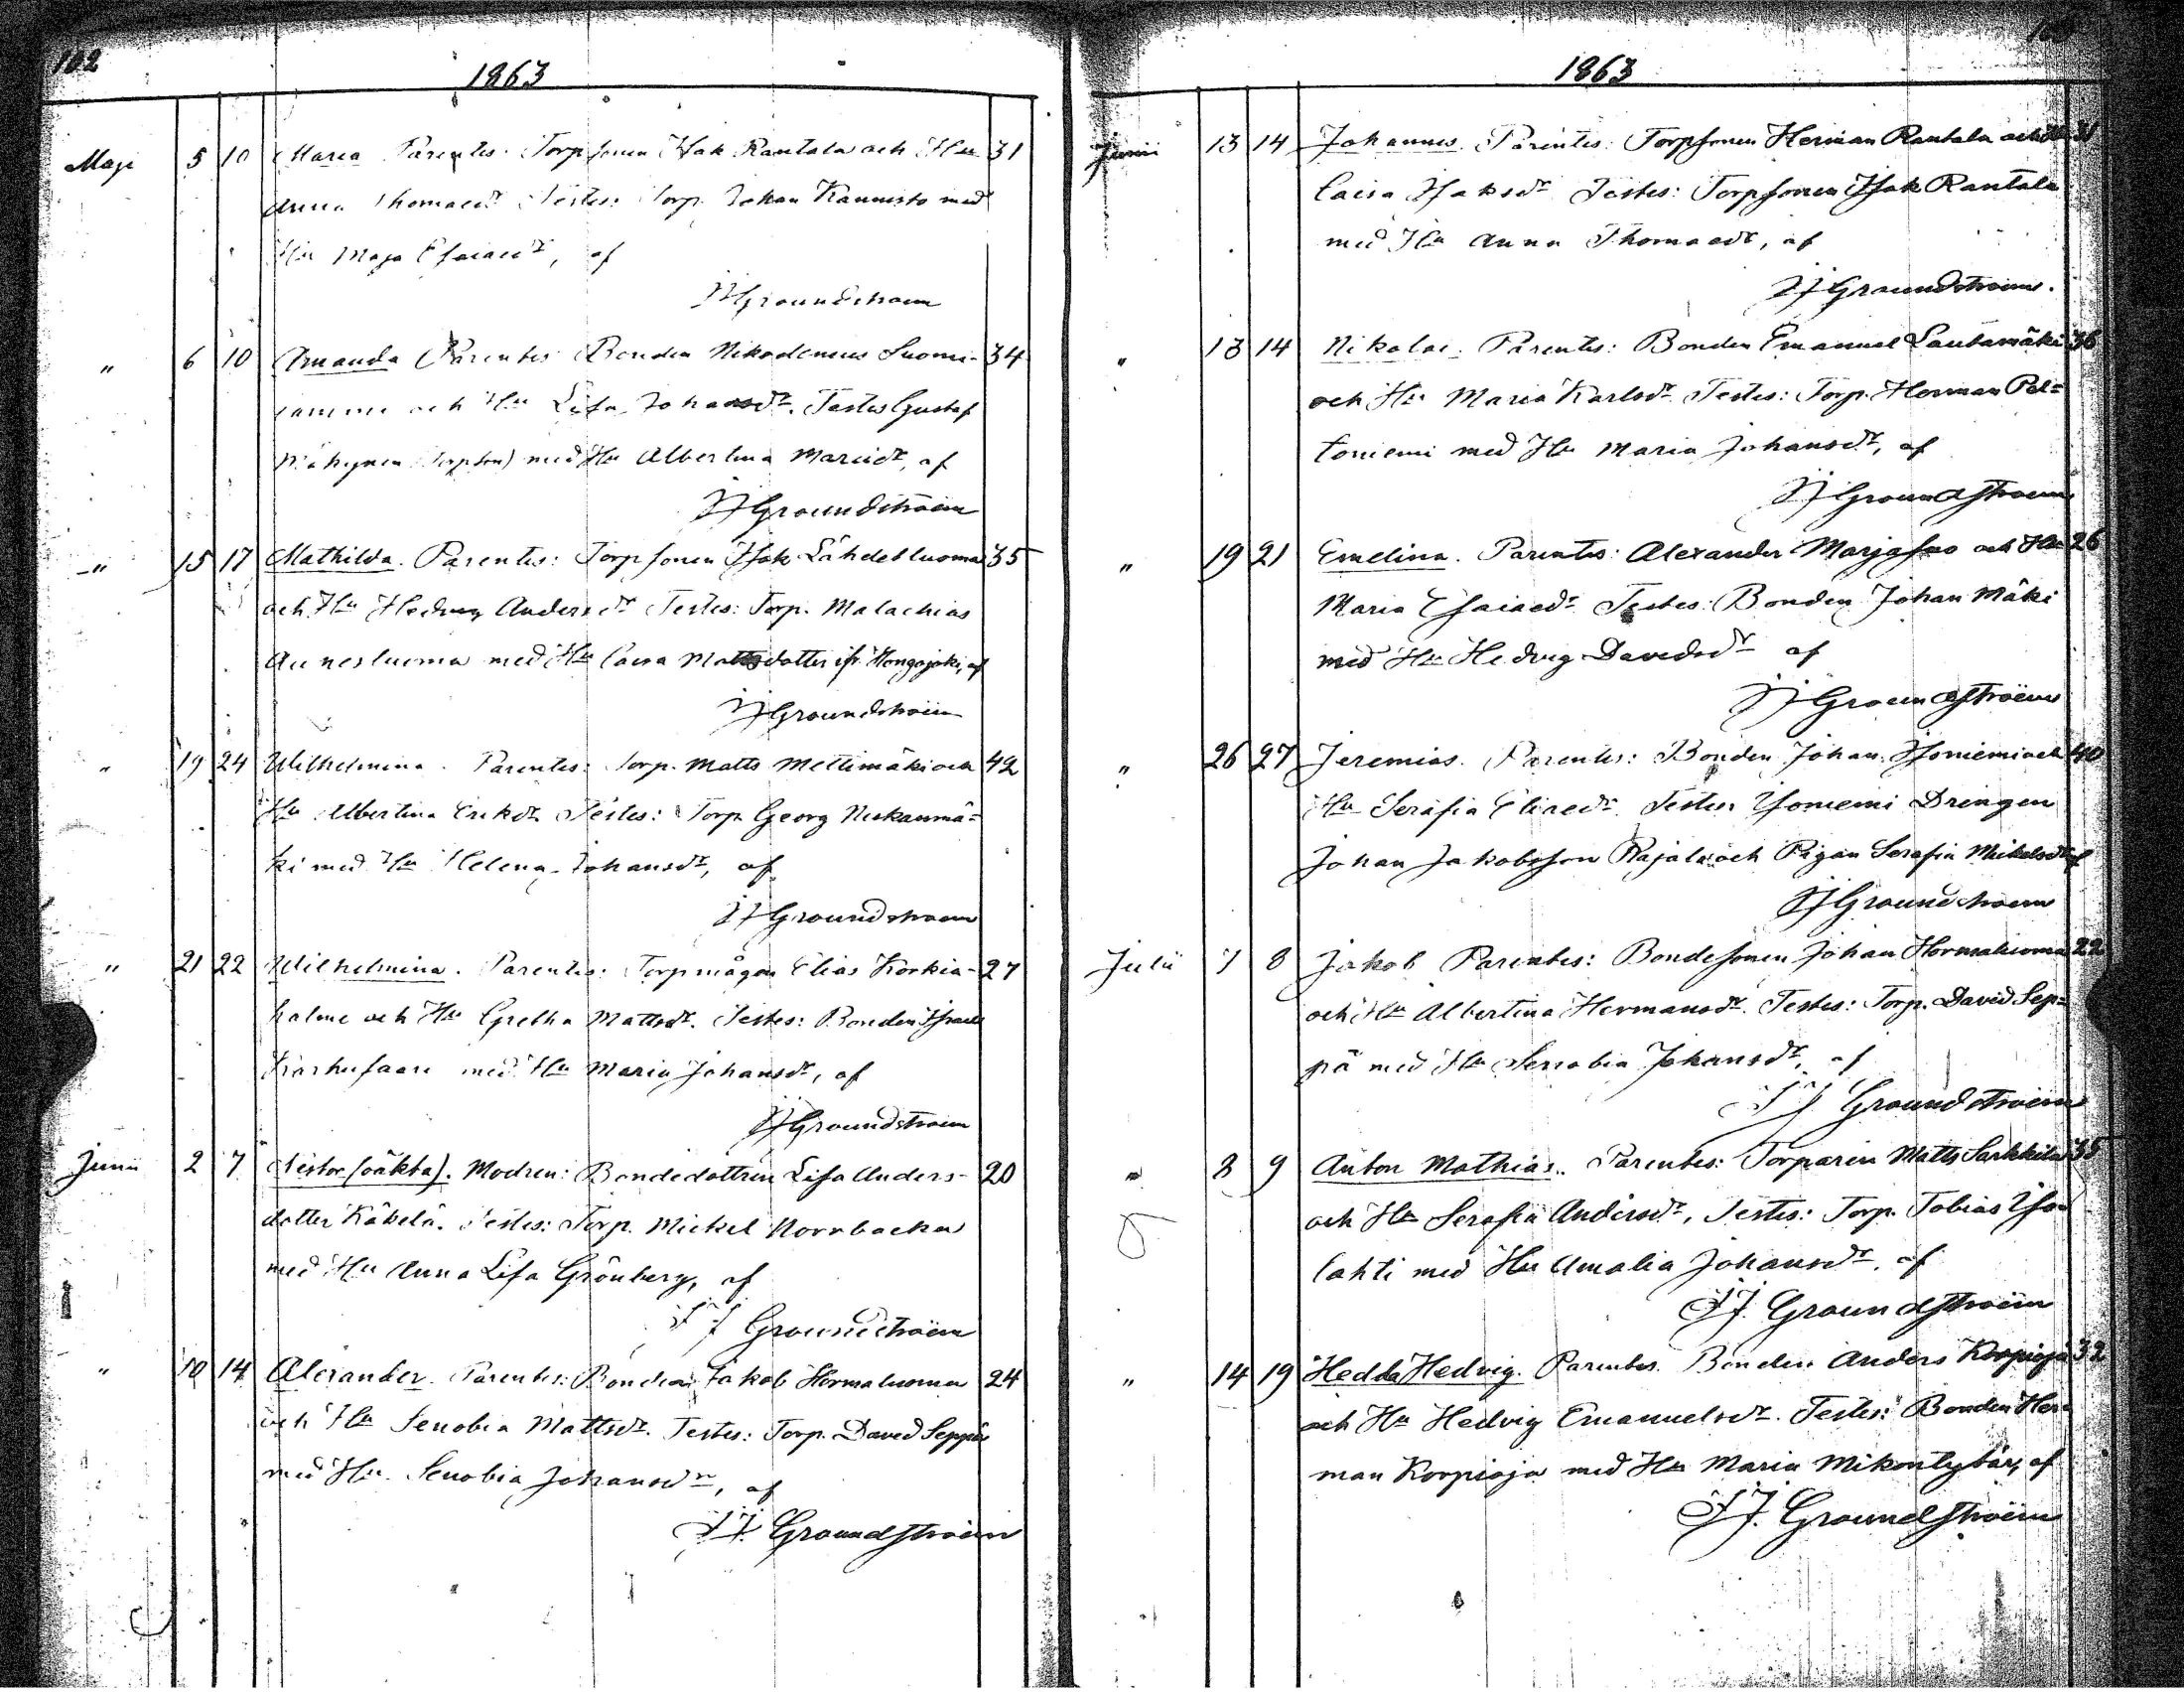 102
1863
Maji 5 10 Maria Parentes: Torpsonen Isak Rantala och Hu 31
Anna Thomaedr Testes: Torp. Johan Kannisto med
Hu Maja Esaiaedr, af
JJ Groundstroem
" 6 10 Amanda Parentes: Bonden Nikodemus Suomi- 34
och Hu Lisa Johansdr. Testes Gustaf
(Torpson) med Hu Albertina af
JJ Groundström
" 15 17 Mathilda. Parentes: Torpsonen Isak Lähdesluoma 35
och Hu Hedvig Andersdr Testes: Torp. Malachias
Aunesluoma med Hu Caisa Mattsdotter ifr. Hongojoki, af
JJ Groundström
" 19 24 Wilhelmina. Parentes: Torp. Matts Mettimäki och 42
Hu Albertina Eriksdr Testes: Torp Georg Niskanmä-
ki med Hu Helena Johansdr, af
JJ Groundstroem
" 21 22 Wilhelmina. Parentes: Torpmågen Elias Korkia- 27
halme och Hu Gretha Mattsdr. Testes: Bonden Israel
Karhusaari med Hu Maria Johansdr, af
JJ Groundstroem
Junii 2 7 Nestor (oäkta). Modren: Bondedottren Lisa Anders- 20
dotter Käkelä. Testes: Torp. Mickel Norrbacka
med Hu Anna Lisa Grönberg, af
JJ Groundström
" 10 14 Alexander. Parentes: Bonden Jakob Hormaluoma 24
och Hu Senobia Mattsdr. Testes: Torp. David Seppä
med Hu Senobia Johansdr, af
JJ. Groundström
1863
Junii 13 14 Johannes. Parentes: Torpsonen Herman Rantala och Hu 31
Caisa Isaksdr Testes: Torpsonen Isak Rantala
med Hu Anna Thomaedr, af
JJ Groundström.
" 13 14 Nikolai. Parentes: Bonden Emanuel Lautamäki 36
och Hu Maria Karlsdr. Testes: Torp. Herman Pel=
toniemi med Hu Maria Johansdr, af
JJ Groundstroem
" 19 21 Emelina. Parentes: Alexander Marjasuo och Hu 26
Maria Esaiaedr Testes: Bonden Johan Mäki
med Hu Hedvig Davidsdr af
JJ Groundström
" 26 27 Jeremias. Parentes: Bonden Johan Isoniemi och 40
Hu Serafia Eliaedr. Testes Isoniemi Drengen
Johan Jakobsson Rajala och Pigan Serafia Mickelsdr af
JJ Groundstroem
Julii 7 8 Jakob Parentes: Bondesonen Johan Hormaluoma 22
och Hu Albertina Hermansdr. Testes: Torp. David Sep=
pä med Hu Senobia Johansdr, af
JJ Groundström
" 8 9 Anton Mathias. Parentes: Torparen Matts Sarkkila 35
och Hu Serafia Andersdr, Testes: Torp. Tobias Iso
lahti med Hu Amalia Johansdr, af
JJ. Groundström
" 14 19 Hedda Hedvig. Parentes. Bonden Anders Korpioja 32
och Hu Hedvig Emanuelsdr. Testes: Bonden Her-
man Korpioja med Hu Maria Mikontytär, af
JJ. Groundström